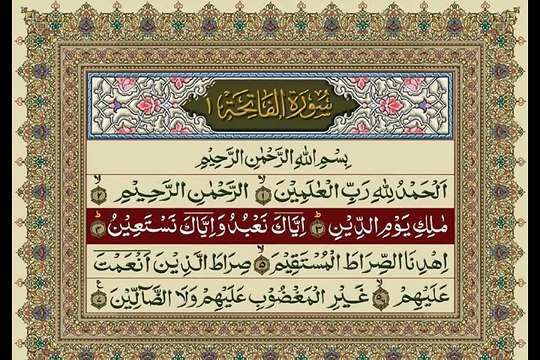 سُوْرَةُ الْفَاتِحَةِ ١
بِسْمِ اللهِ الرَّحْمٰنِ الرَّحِيْمِ
اَلْحَمْدُ لِلّٰهِ رَبِّ الْعٰلَمِيْنَ ۙ﴿١﴾ الرَّحْمٰنِ الرَّحِيْمِ ۙ﴿٢﴾
مٰلِكِ يَوْمِ الدِّيْنِ ؕ﴿٣﴾ اِيَّاكَ نَعْبُدُ وَاِيَّاكَ نَسْتَعِيْنُ ؕ﴿٤﴾
اِهْدِنَا الصِّرَاطَ الْمُسْتَقِيْمَ ۙ﴿٥﴾ صِرَاطَ الَّذِيْنَ اَنْعَمْتَ
عَلَيْهِمْ ۙ﴿٦﴾ غَيْرِ الْمَغْضُوْبِ عَلَيْهِمْ وَلَا الضَّآلِّيْنَ ﴿٧﴾